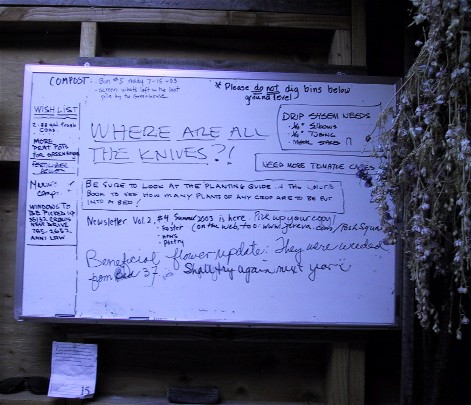 COMPOST - Bin #5 ready 7-15-03
- screen what's left in the last
pile by the
* Please do not dig bins below
ground level
WISH LIST
2 - 32 gal trash
cans
MORE
PEAT POTS
FOR GREENHOUSE
WINDOWS TO
BE PICKED UP
NEAR DRIVE
ANNI LAW
WHERE ARE ALL
THE KNIVES?!
DRIP SYSTEM NEEDS
- 1/4" ELBOWS
- 1/4" TUBING
NEED MORE TOMATOE CAGES
BE SURE TO LOOK AT THE PLANTING GUIDE IN THE
BOOK TO SEE HOW MANY PLANTS OF ANY CROP ARE TO BE PUT
INTO A BED!
Newsletter Vol. 2, #4 Summer 2003 is here. Pick up your copy!
- Easter (on the web, too: www.
- news
- Poetry
Beneficial flower update: They were weeded
from 37. Shall try again next year
15